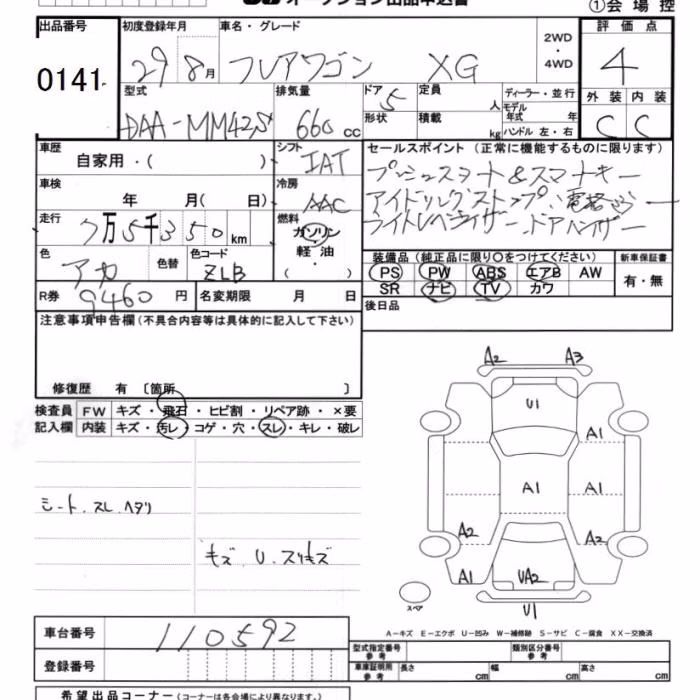 オークション出品申込書
①会場控
出品番号
0141
初度登録年月
29 8月
車名・グレード
フレアワゴン XG
2WD
・
4WD
評価点
4
外装 内装
C C
型式
DAA-MM42S
排気量
660 cc
ドア 5
形状
定員 人
積載 kg
ディーラー・並行
モデル年式 年
ハンドル 左・右
車歴
自家用・( )
シフト
IAT
セールスポイント (正常に機能するものに限ります)
プッシュスタート&スマートキー
アイドリングストップ、電格ミラー
ライトレベライザー、ドアバイザー
車検
年 月( 日)
冷房
AAC
走行
7万5千350km
燃料
ガソリン
軽油
( )
色
アカ
色替
色コード
ZLB
装備品 (純正品に限り○をつけてください)
PS PW ABS エアB AW
SR ナビ TV カワ
新車保証書
有・無
R券 9460円
名変期限 月 日
後日品
注意事項申告欄 (不具合内容等は具体的に記入して下さい)
修復歴 有 〔箇所 〕
検査員記入欄
FW キズ・飛石・ヒビ割・リペア跡・×要
内装 キズ・汚レ・コゲ・穴・スレ・キレ・破レ
シート、スレ、ヘタリ
キズ、U、スリキズ
A2 A3
U1
A1
A1 A1
A2 A2
A1 UA2
U1
スペア
A-キズ E-エクボ U-凹み W-補修跡 S-サビ C-腐食 XX-交換済
車台番号
110592
登録番号
型式指定番号 参考
類別区分番号 参考
車庫証明用 参考
長さ cm 幅 cm 高さ cm
希望出品コーナー (コーナーは各会場により異なります。)